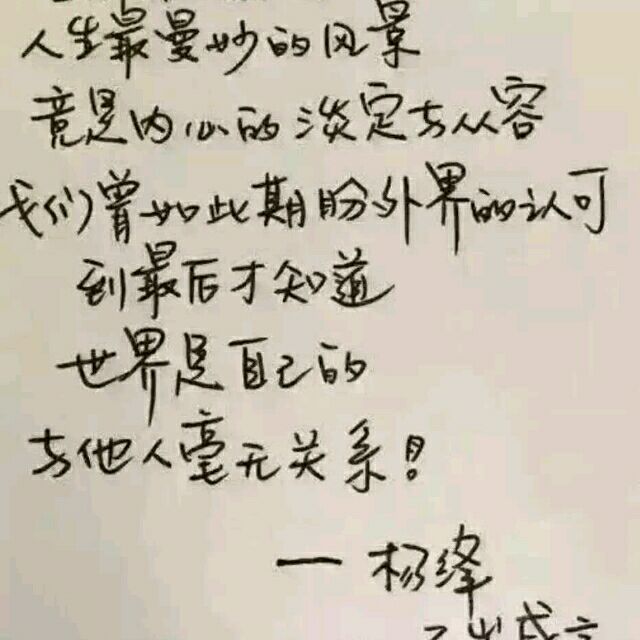 人生最曼妙的风景
竟是内心的淡定与从容
我们曾如此期盼外界的认可
到最后才知道
世界是自己的
与他人毫无关系!
一 杨绛